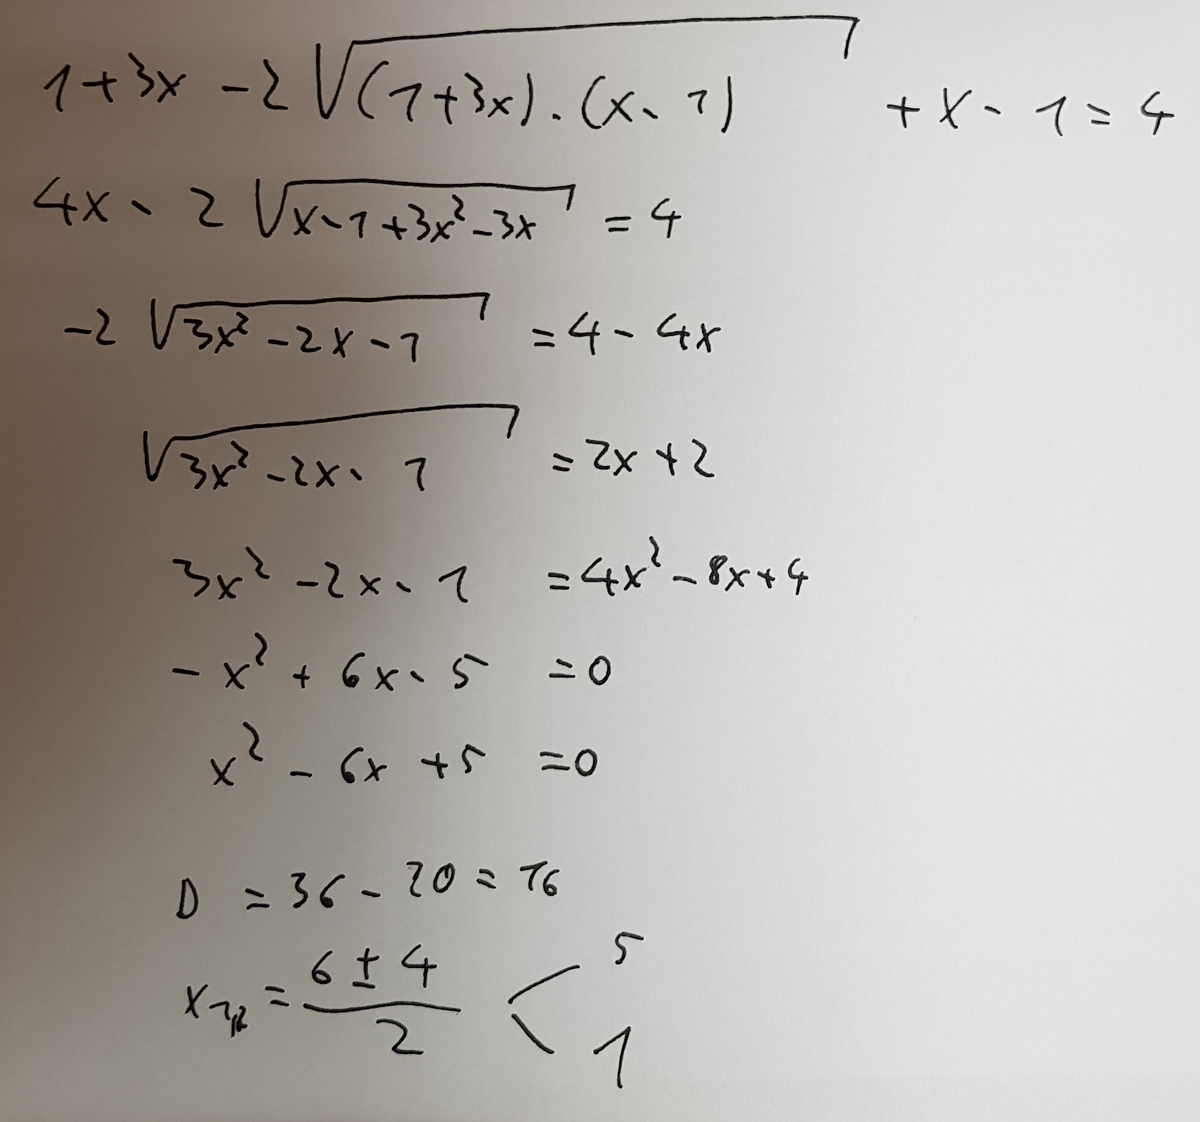 1+3x -2 √((1+3x).(x-1)) + x - 1 = 4
4x - 2 √(x-1+3x²-3x) = 4
-2 √(3x²-2x-1) = 4 - 4x
√(3x²-2x-1) = 2x + 2
3x² - 2x - 1 = 4x² - 8x + 4
- x² + 6x - 5 = 0
x² - 6x + 5 = 0
D = 36 - 20 = 16
x₁,₂ = (6 ± 4)/2 < 5
1